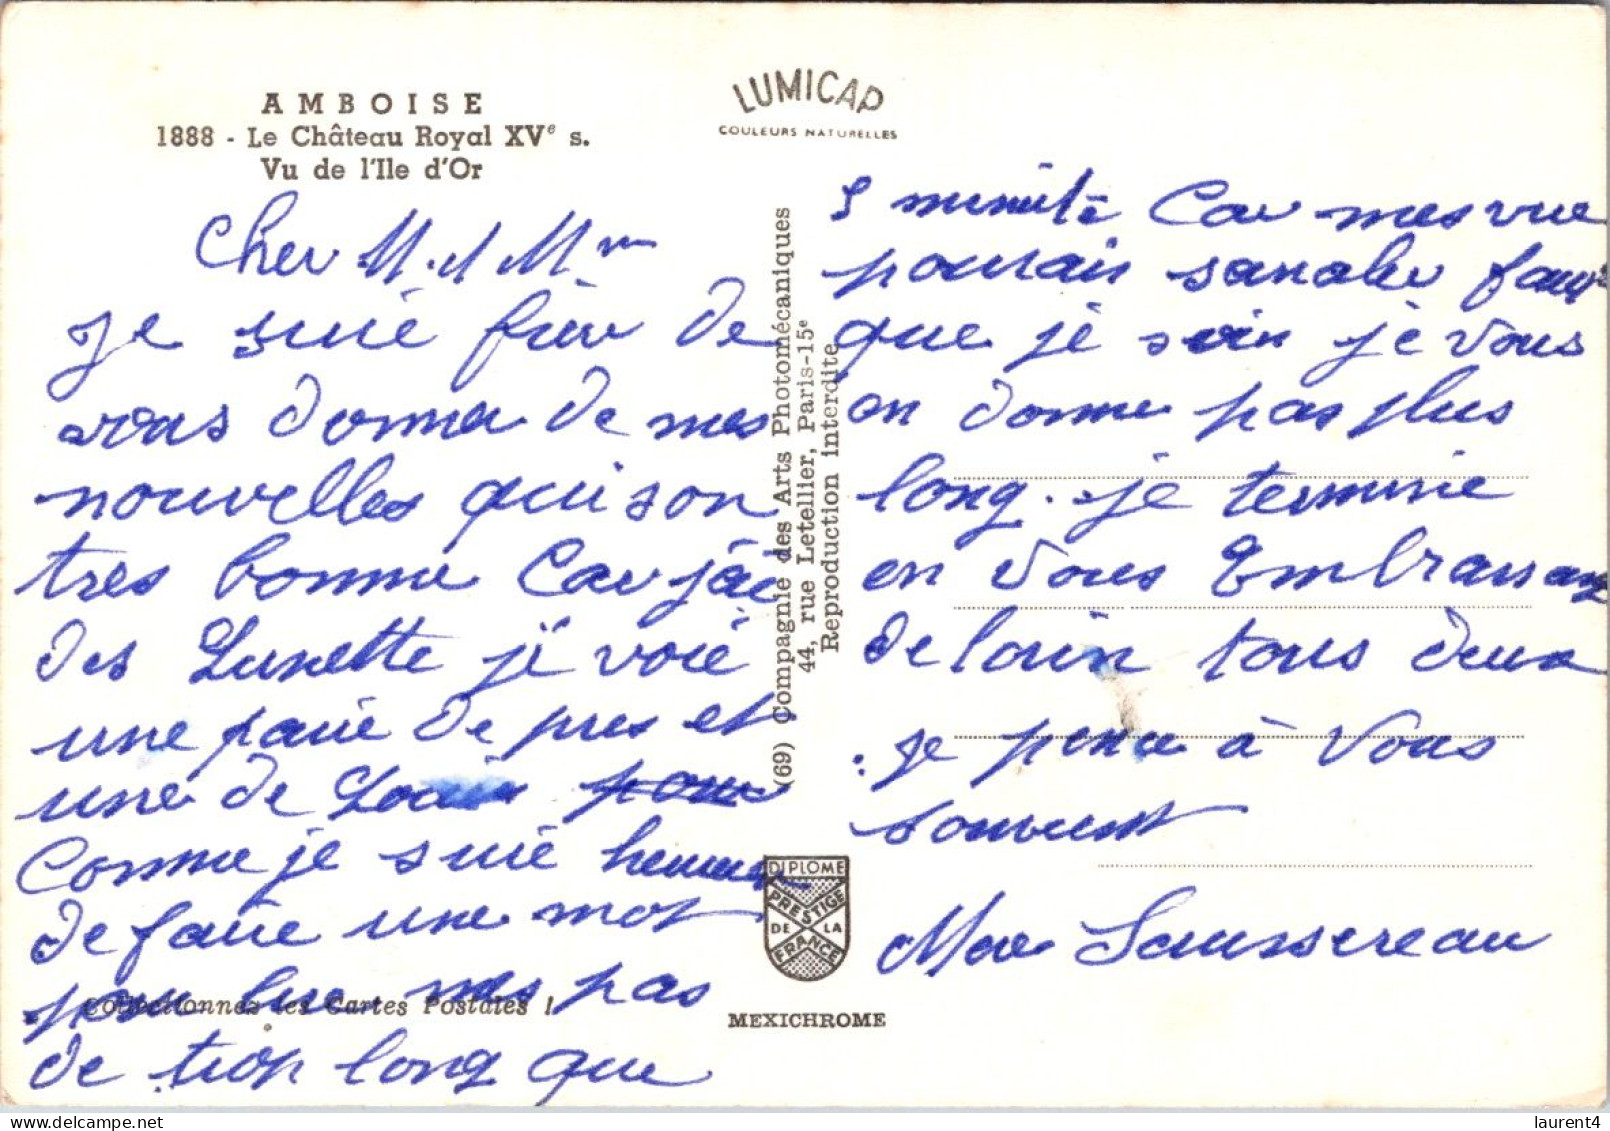 AMBOISE
1888 - Le Château Royal XVe s.
Vu de l'Ile d'Or
LUMICAP
COULEURS NATURELLES
Cher M. et Mm
je suie fier de
vous donner de mes
nouvelles qui son
tres bonne Car jái
des Lunette jé voié
une paire de pres et
une de Loin pour
Comme je suié heureux
de faire une mot
pour lire mes pas
de trop long que
5 minute Car mes vue
pourais sanaler faux
que jé soin jé vous
en donne pas plus
long. je terminé
en Vous Embrassant
de loin tous deux
je pense à Vous
souvent
Mme Saussereau
(69) Compagnie des Arts Photomécaniques
44, rue Letellier, Paris-15e
Reproduction interdite
DIPLOME
PRESTIGE
DE LA
FRANCE
Collectionnez les Cartes Postales !
MEXICHROME
delcampe.net
laurent4